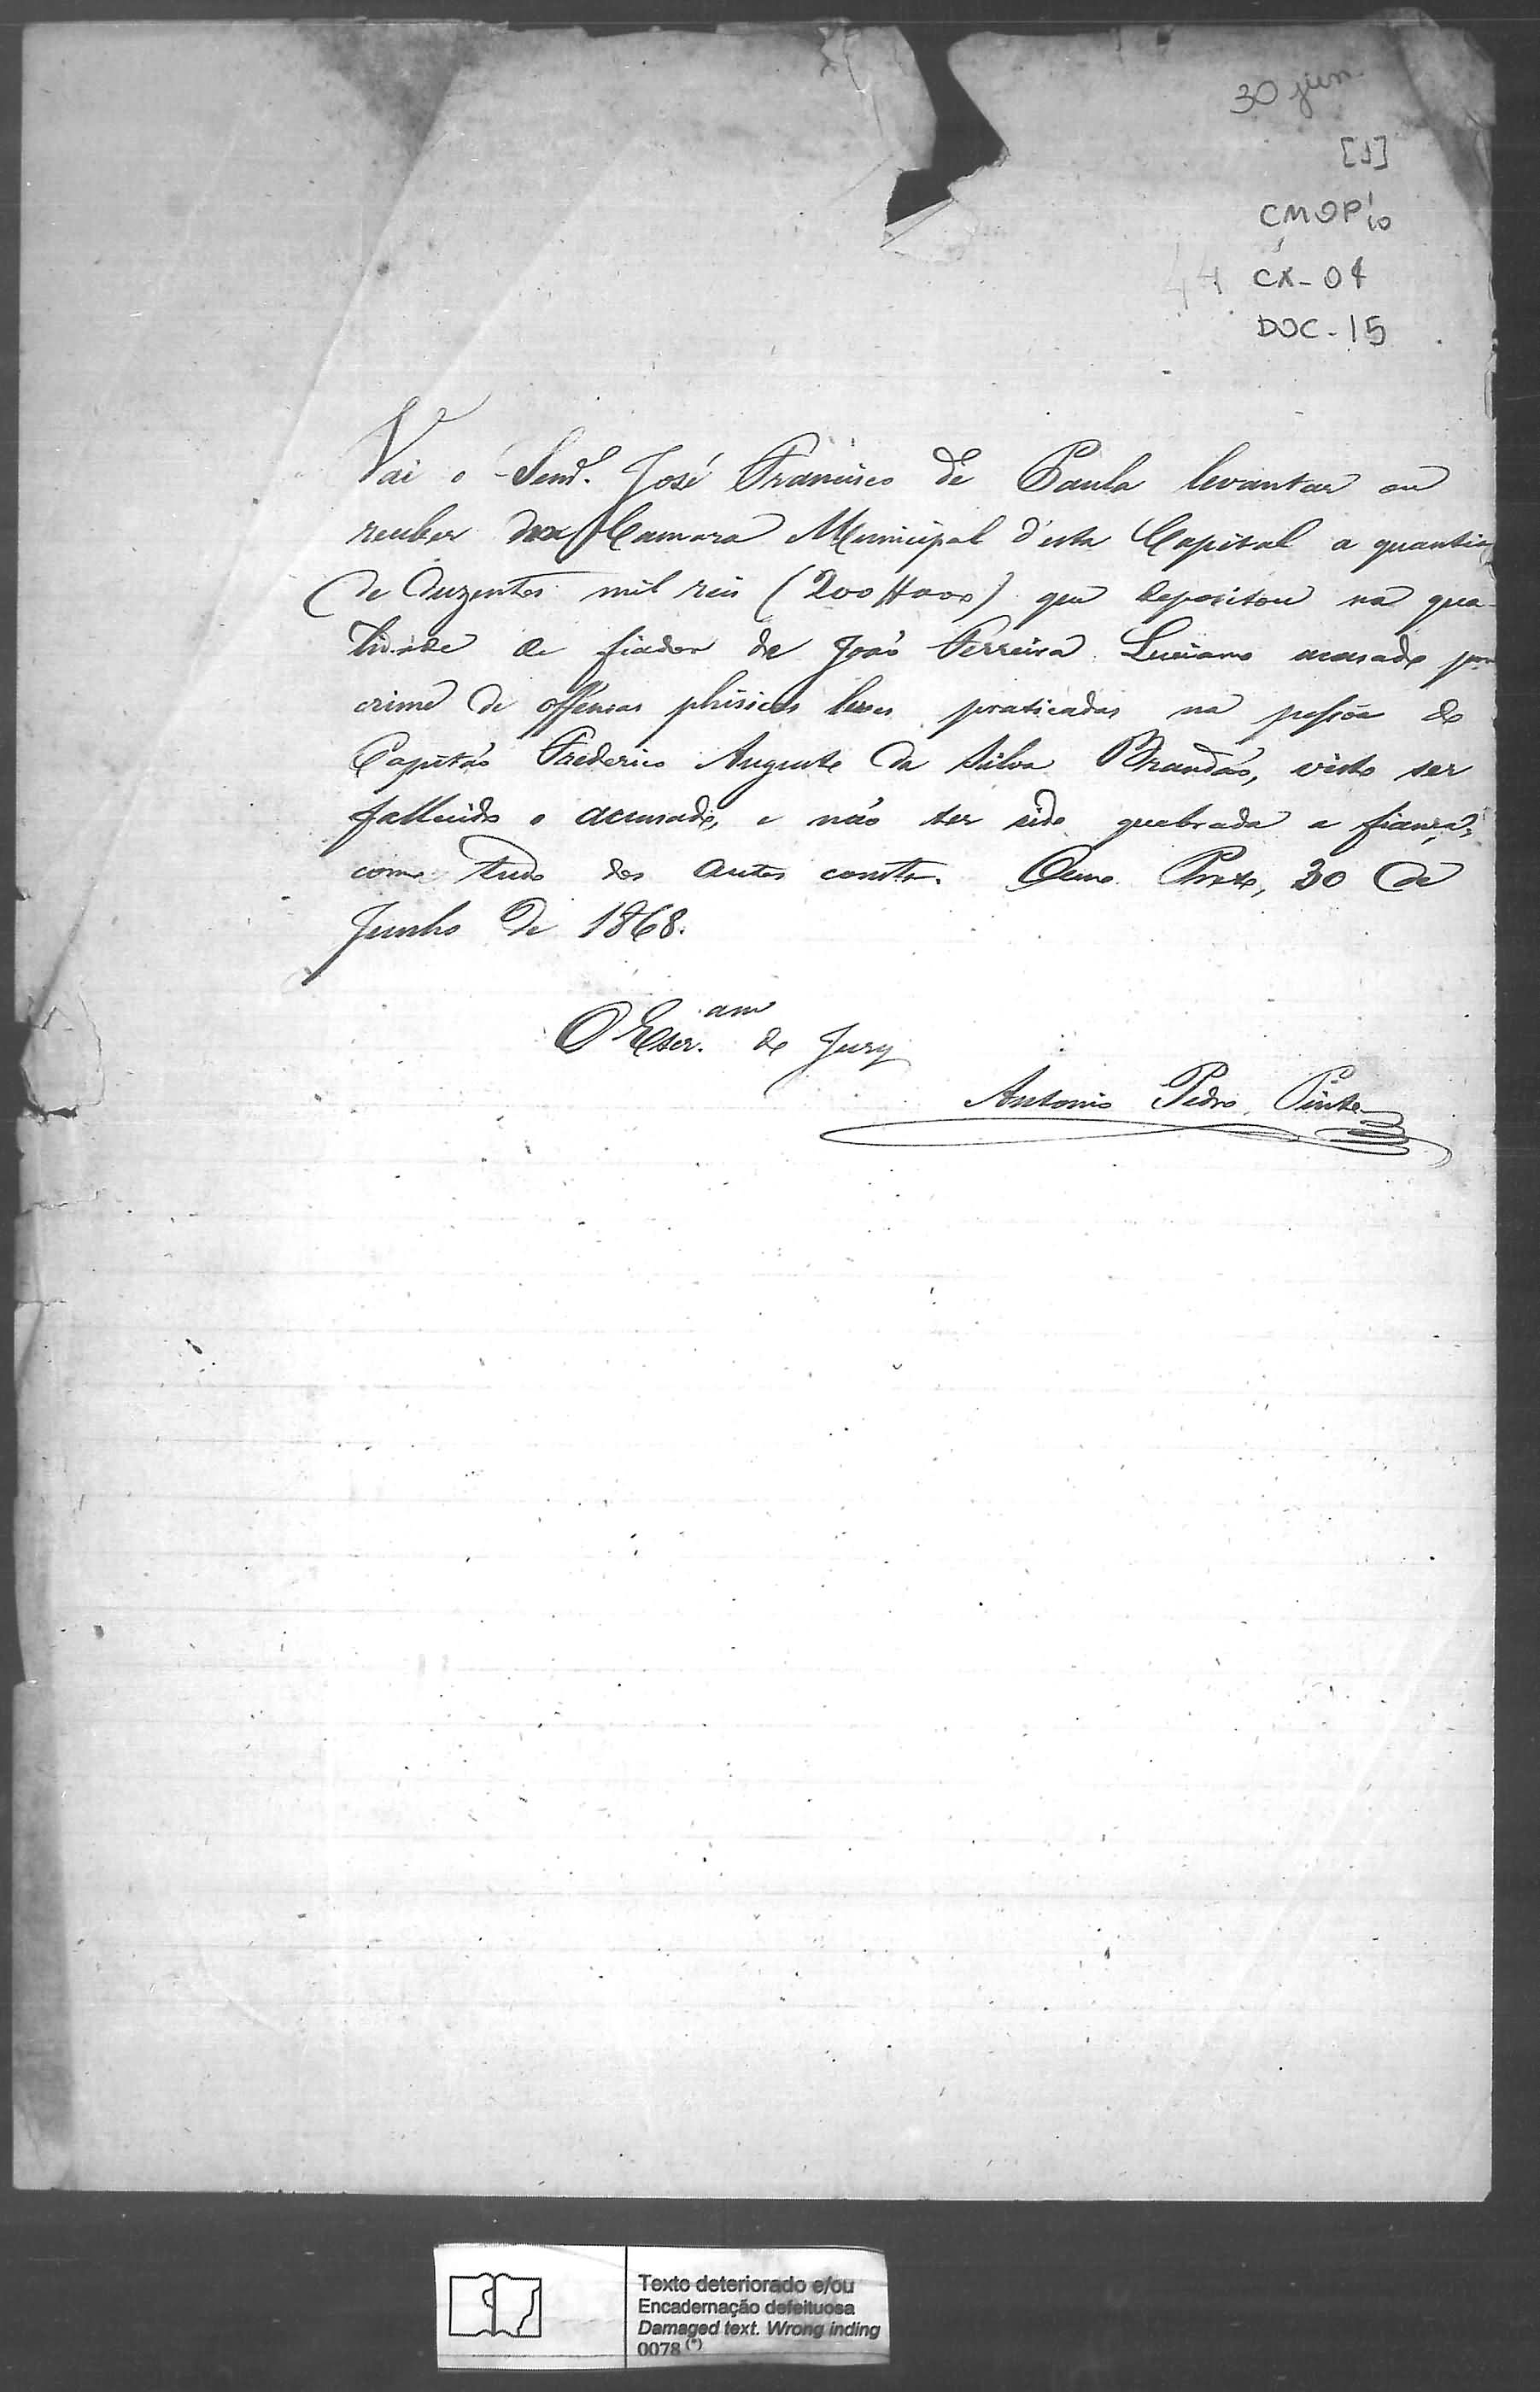 30 jun.
[1]
CMOP 1/10
44 CX-04
DOC-15
Vai o Send.e José Francisco de Paula levantar ou
receber da Camara Municipal d'esta Capital a quantia
de duzentos mil reis (200#000) que depositou na qua-
lidade de fiador de João Ferreira Luciano acusado por
crime de offensas phisicas leves praticadas na pessôa do
Capitão Frederico Augusto da Silva Brandão, visto ser
fallecido o accusado, e não ter sido quebrada a fiança;
como tudo dos autos consta. Ouro Preto, 30 de
Junho de 1868.
O Escr.am do Jury
Antonio Pedro Pinto
Texto deteriorado e/ou
Encadernação defeituosa
Damaged text. Wrong inding
0078 (*)